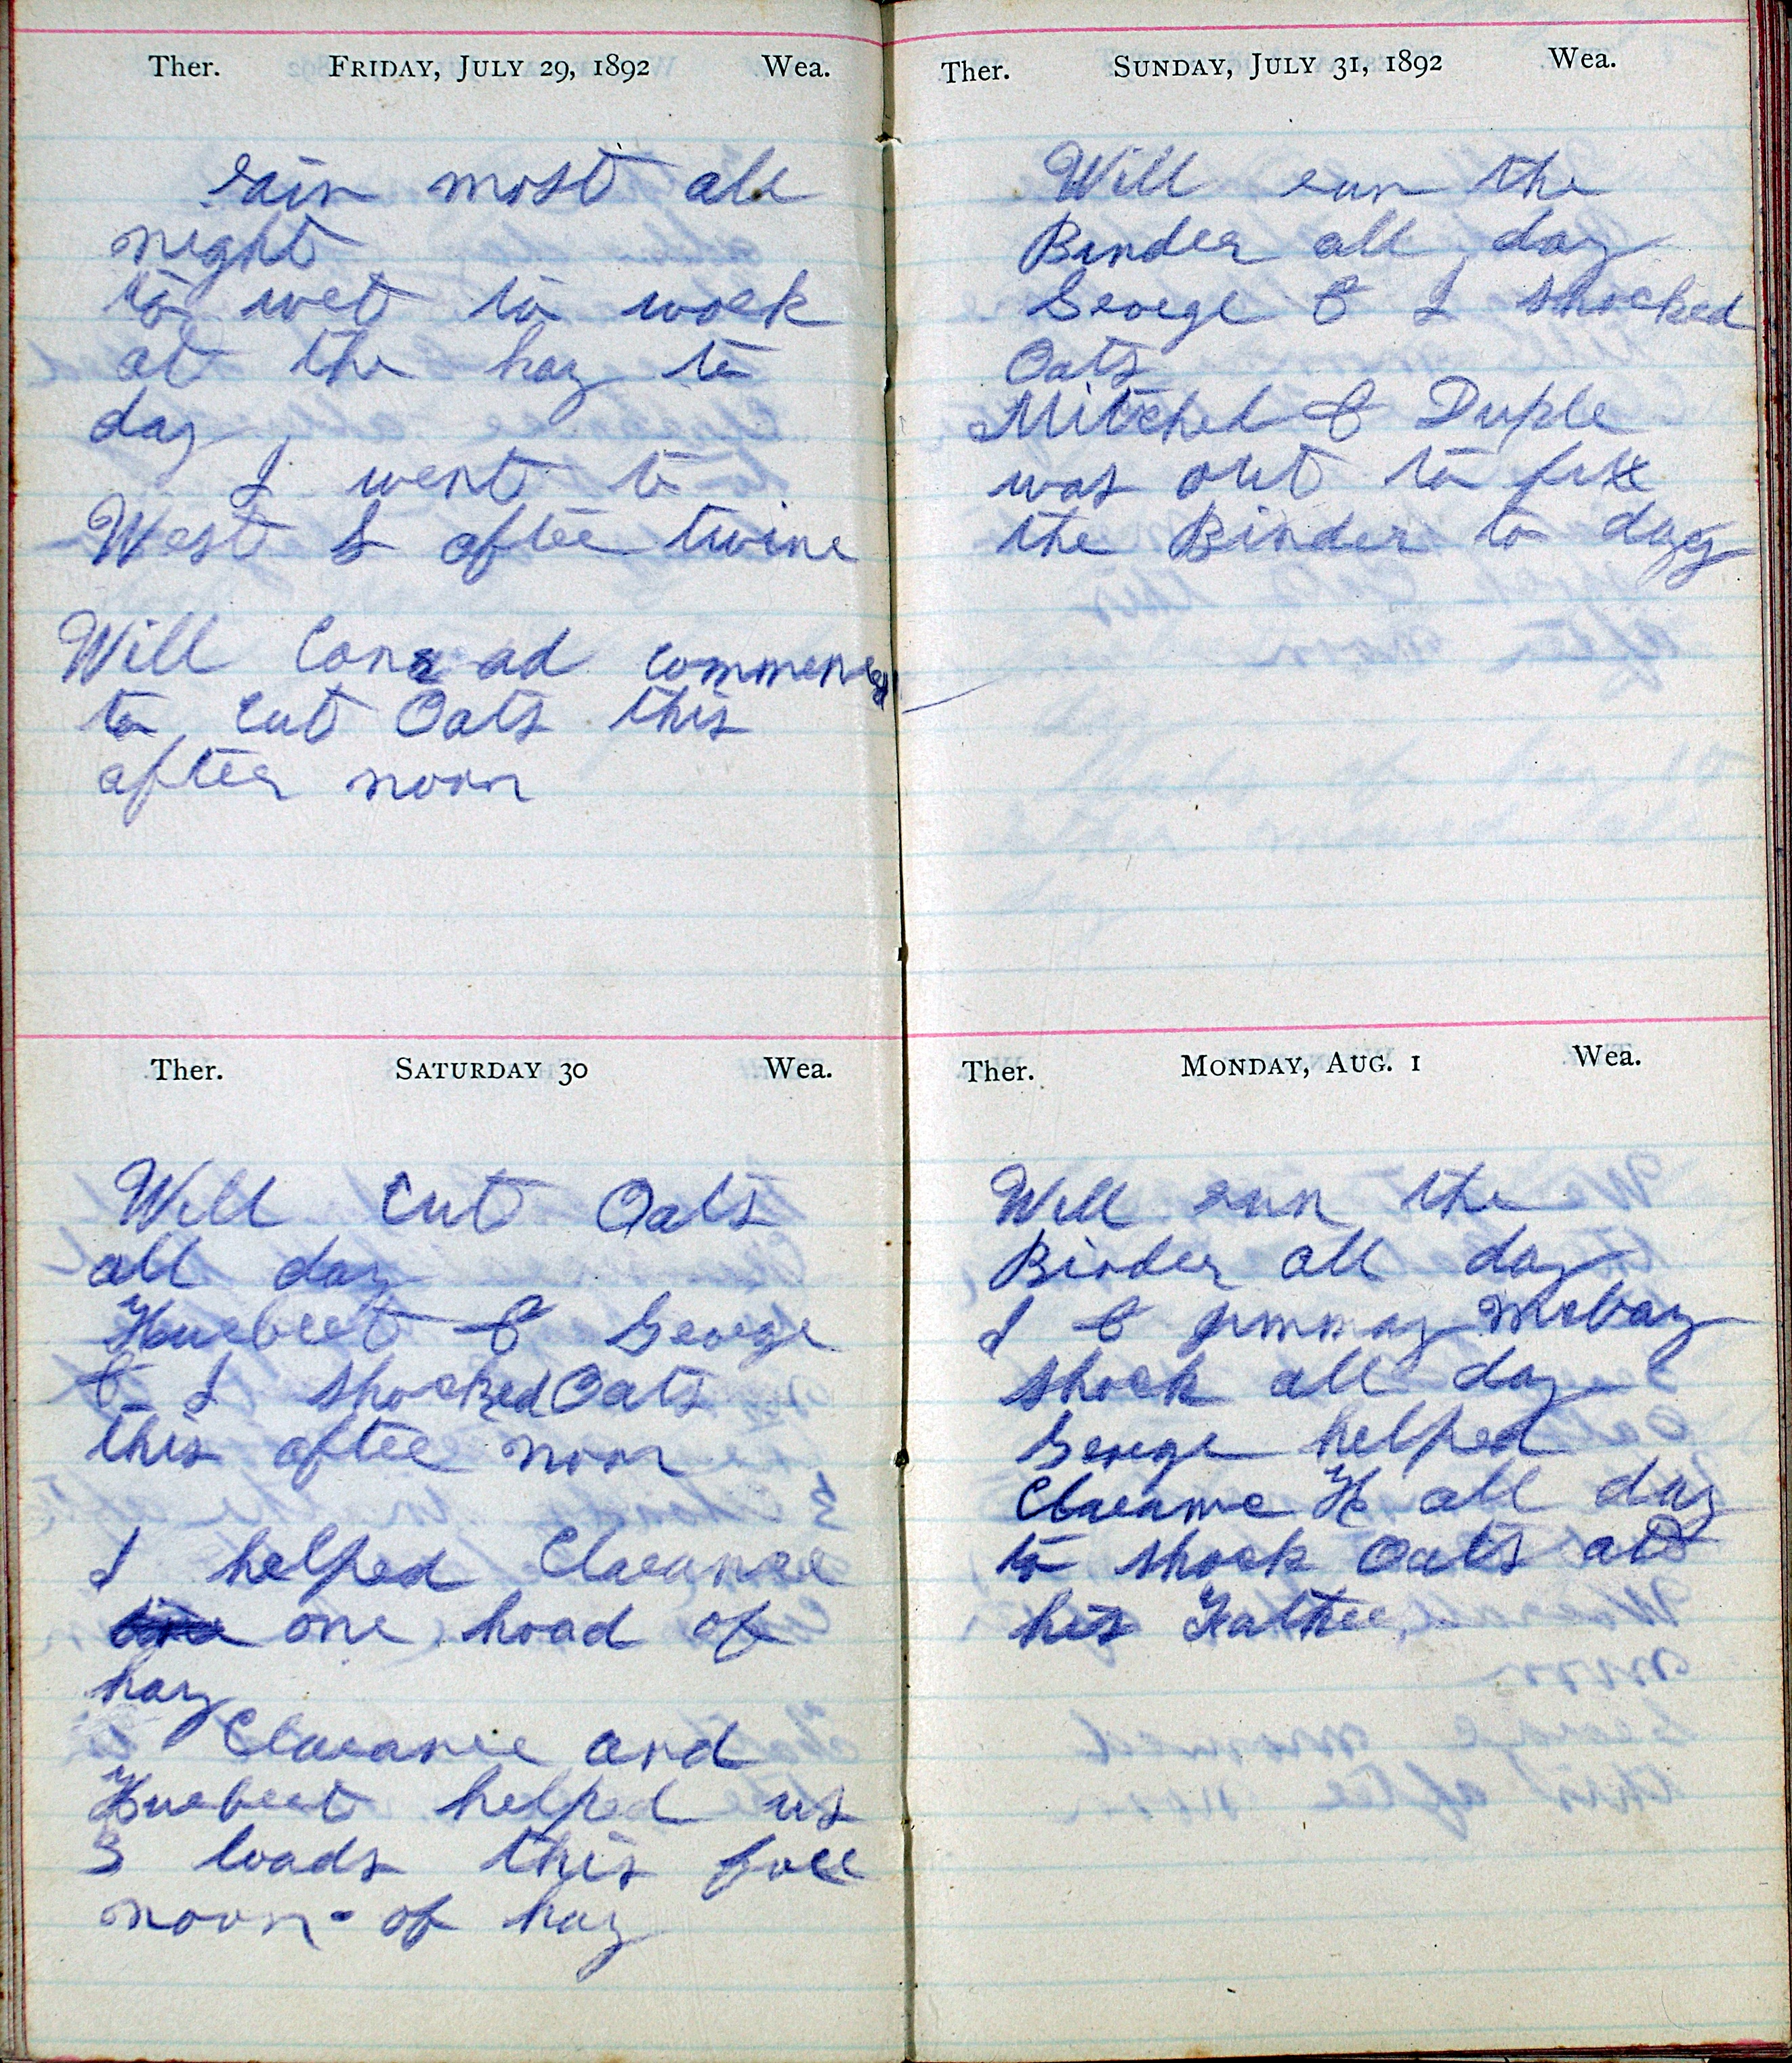 Ther. FRIDAY, JULY 29, 1892 Wea.
rain most all
night
to wet to work
at the hay to
day
I went to
West S after twine
Will Conrad commenced
to cut Oats this
after noon
Ther. SATURDAY 30 Wea.
Will Cut Oats
all day
Huebert & George
& I shocked Oats
this after noon
I helped Clarance
one load of
hay
Clarance and
Huebert helped us
3 loads this fore
noon - of hay
Ther. SUNDAY, JULY 31, 1892 Wea.
Will run the
Binder all day
George & I shocked
Oats
Mitchel & Duple
was out to fix
the Binder to day
Ther. MONDAY, AUG. 1 Wea.
Will run the
Binder all day
I & Jimmay
shock all day
George helped
Clarance H all day
to shock Oats at
his Father